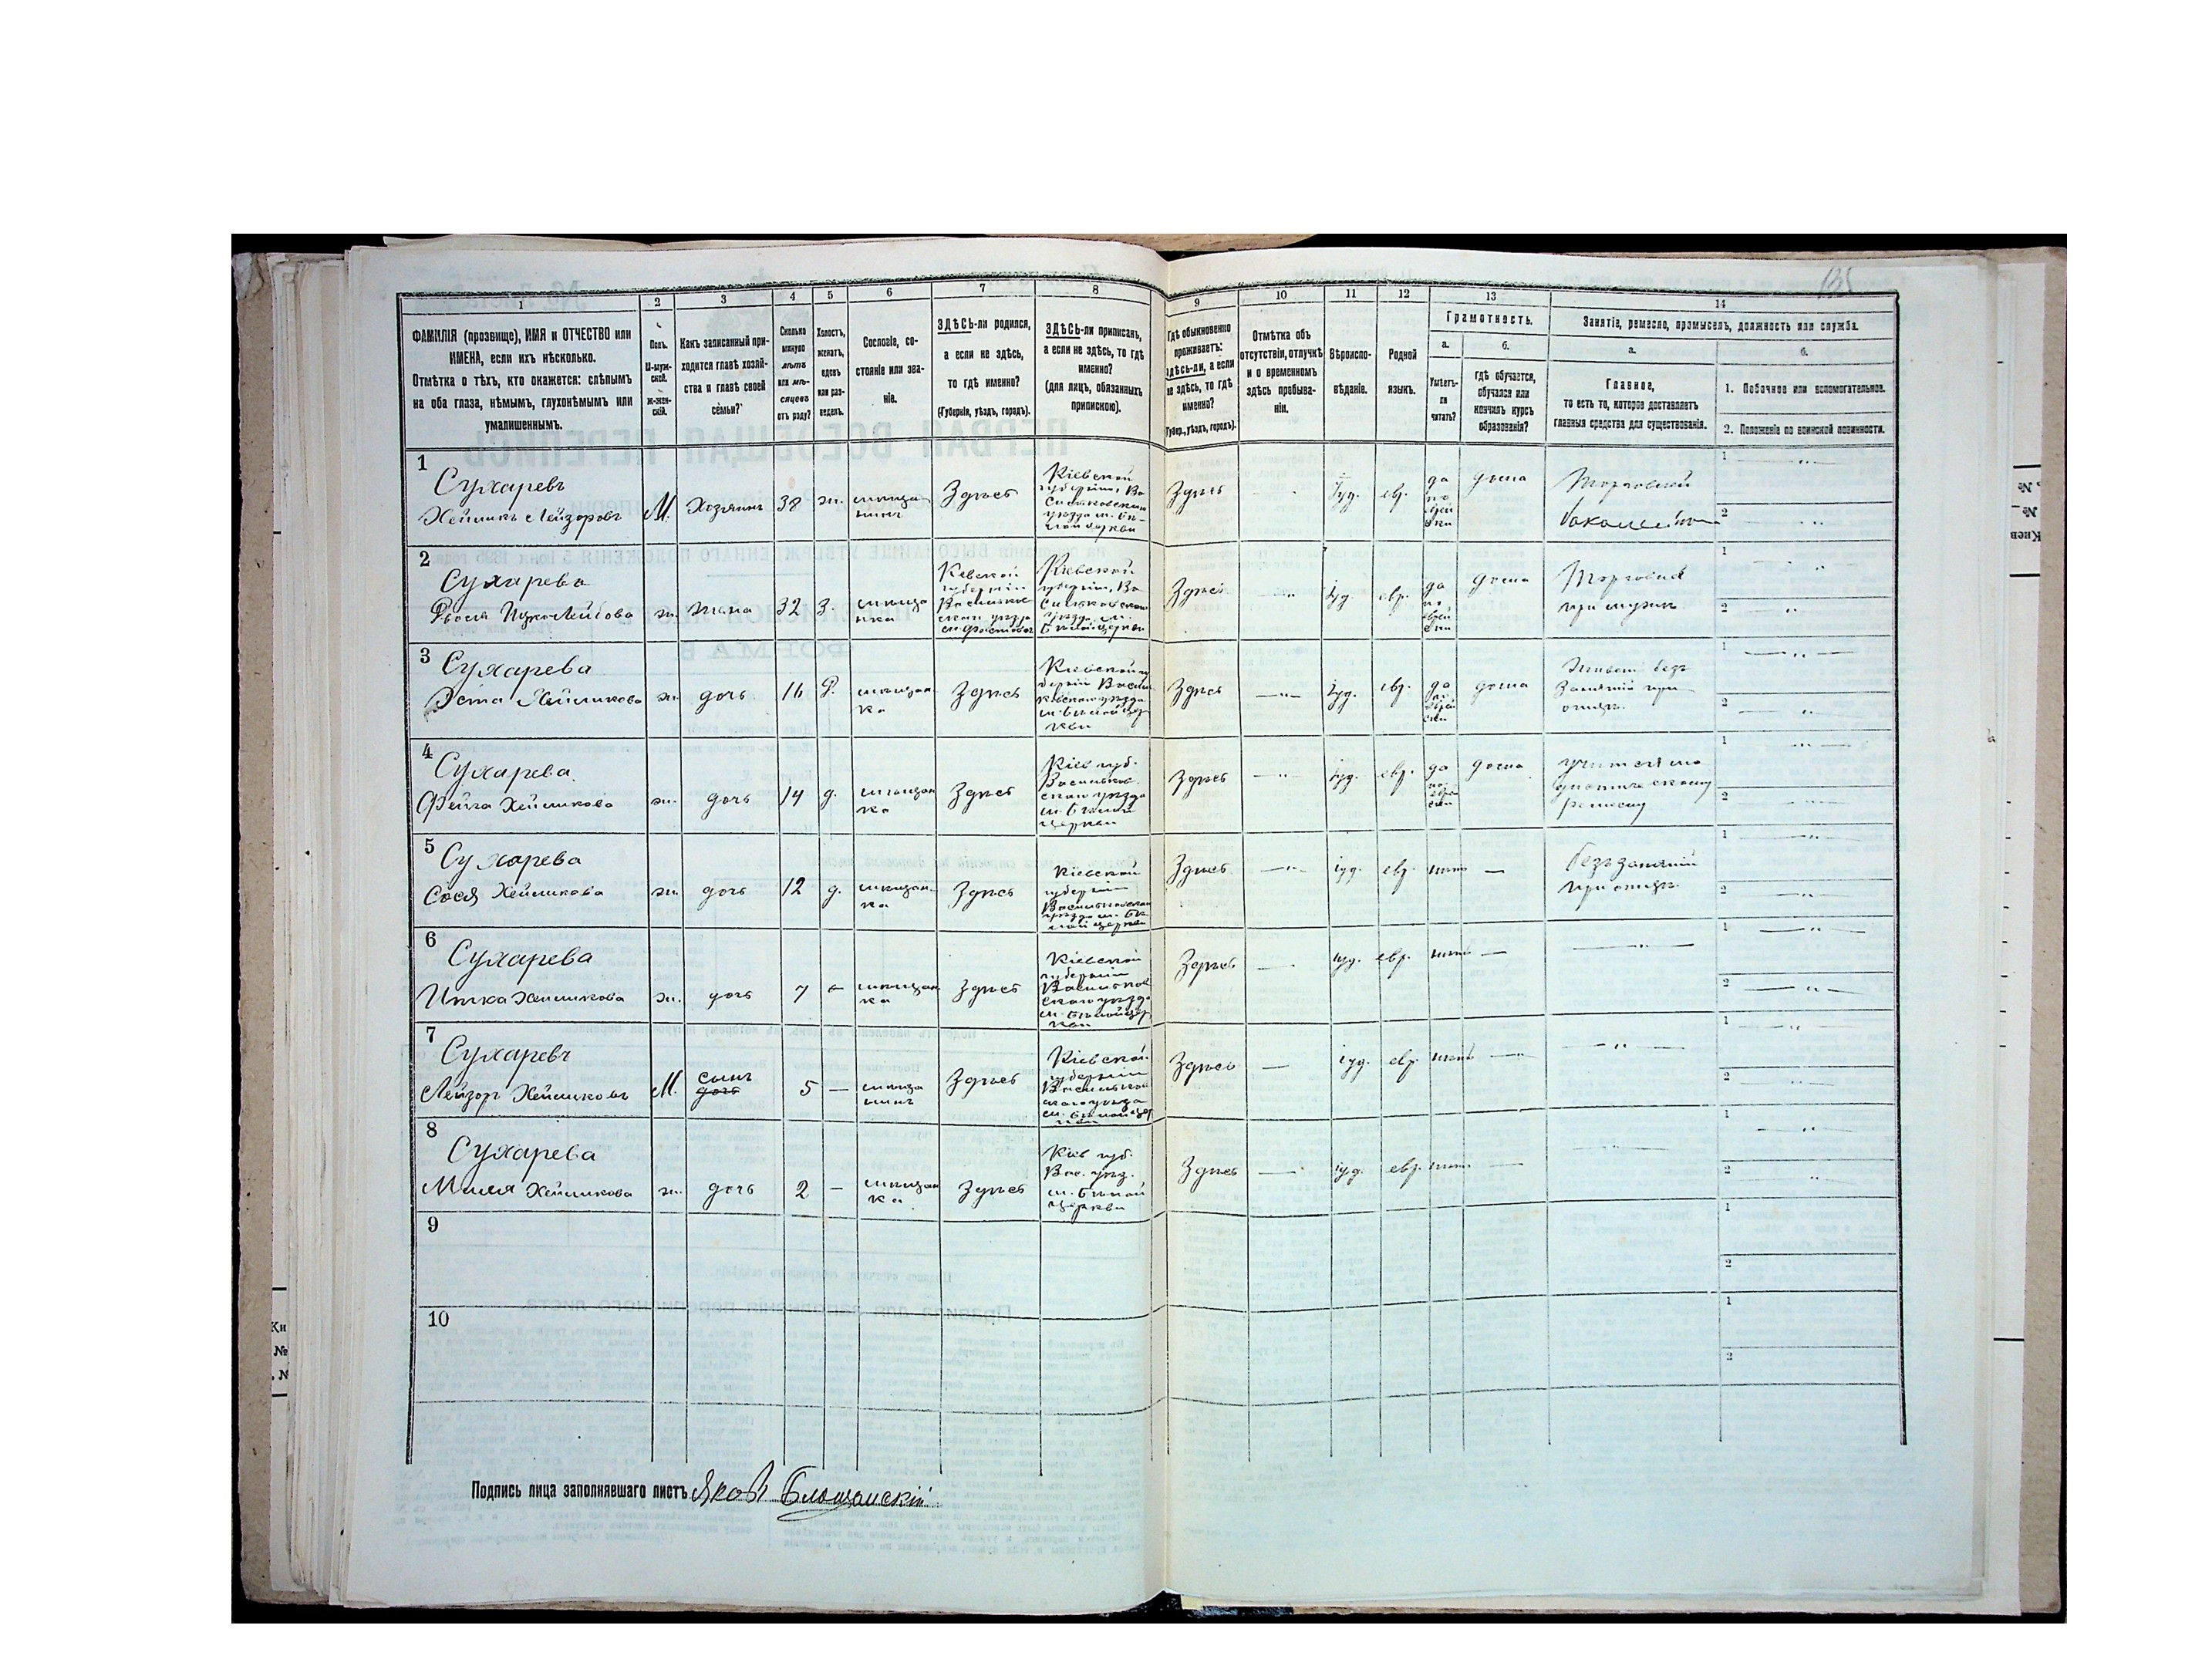 135
1 2 3 4 5 6 7 8 9 10 11 12 13 14
ФАМИЛІЯ (прозвище), ИМЯ и ОТЧЕСТВО или
ИМЕНА, если ихъ нѣсколько.
Отмѣтка о тѣхъ, кто окажется: слѣпымъ
на оба глаза, нѣмымъ, глухонѣмымъ или
умалишеннымъ.
Полъ.
М-муж-
ской.
ж-жен-
скій.
Какъ записанный при-
ходится главѣ хозяй-
ства и главѣ своей
семьи?
Сколько
минуло
лѣтъ
или мѣ-
сяцевъ
отъ роду?
Холостъ,
женатъ,
вдовъ
или раз-
веденъ.
Сословіе, со-
стояніе или зва-
ніе.
ЗДѢСЬ-ли родился,
а если не здѣсь,
то гдѣ именно?
(Губернія, уѣздъ, городъ).
ЗДѢСЬ-ли приписанъ,
а если не здѣсь, то гдѣ
именно?
(для лицъ, обязанныхъ
припискою).
Гдѣ обыкновенно
проживаетъ:
здѣсь-ли, а если
не здѣсь, то гдѣ
именно?
(Губер., уѣздъ, городъ).
Отмѣтка объ
отсутствіи, отлучкѣ
и о временномъ
здѣсь пребыва-
ніи.
Вѣроиспо-
вѣданіе.
Родной
языкъ.
Грамотность.
а.
Умѣетъ-
ли
читать?
б.
гдѣ обучается,
обучался или
кончилъ курсъ
образованія?
Занятіе, ремесло, промыселъ, должность или служба.
а.
Главное,
то есть то, которое доставляетъ
главныя средства для существованія.
б.
1. Побочное или вспомогательное.
2. Положеніе по воинской повинности.
1
Сухаревъ
Хеймикъ Лейзоровъ
М.
Хозяинъ
38
ж.
мѣща
нинъ
Здѣсь
Кіевской
губерніи, Ва
сильковскаго
уѣзда м. Бѣ-
лой церкви
Здѣсь
Іуд.
евр.
да
по
еврей
ски
дома
Торговлей
2
Сухарева
ж.
жена
32
З.
мѣща
нка
Кіевской
губерніи
Васильков
скаго уѣзда
м. Фастовъ
Кіевской
губерніи, Ва
сильковскаго
уѣзда м.
Бѣлой церкви
Здѣсь
Іуд.
евр.
да
по
еврей
ски
дома
Торговля
при мужѣ
3
Сухарева
Эста Хеймикова
ж.
дочь
16
Д.
мѣщан
ка
Здѣсь
Здѣсь
Іуд.
евр.
да
по
еврей
ски
дома
Живетъ безъ
занятій при
отцѣ
4
Сухарева
Фейга Хеймикова
ж.
дочь
14
д.
мѣщан
ка
Здѣсь
Кіев губ.
Васильков
скаго уѣзда
м. Бѣлой
церкви
Здѣсь
Іуд.
евр.
да
по
еврей
ски
дома
5
Сухарева
Сося Хеймикова
ж.
дочь
12
д.
мѣщан
ка
Здѣсь
Кіевской
губерніи
Васильковскаго
уѣзда м. Бѣ
лой церкви
Здѣсь
іуд.
евр.
нѣтъ
безъ занятій
при отцѣ
6
Сухарева
Итка Хеймикова
ж.
дочь
7
мѣщан
ка
Здѣсь
Кіевской
губерніи
Васильков
скаго уѣзда
м. Бѣлой цер
кви
Здѣсь
іуд.
евр.
нѣтъ
7
Сухаревъ
Лейзоръ Хеймиковъ
М.
сынъ
дочь
5
мѣща
нинъ
Здѣсь
Кіевской
губерніи
Васильков
скаго уѣзда
м. Бѣлой цер
кви
Здѣсь
іуд.
евр.
нѣтъ
8
Сухарева
Миля Хеймикова
ж.
дочь
2
мѣщан
ка
Здѣсь
Кіев губ.
Вас. уѣз.
м. Бѣлой
церкви
Здѣсь
іуд.
евр.
нѣтъ
9
10
Подпись лица заполнявшаго листъ